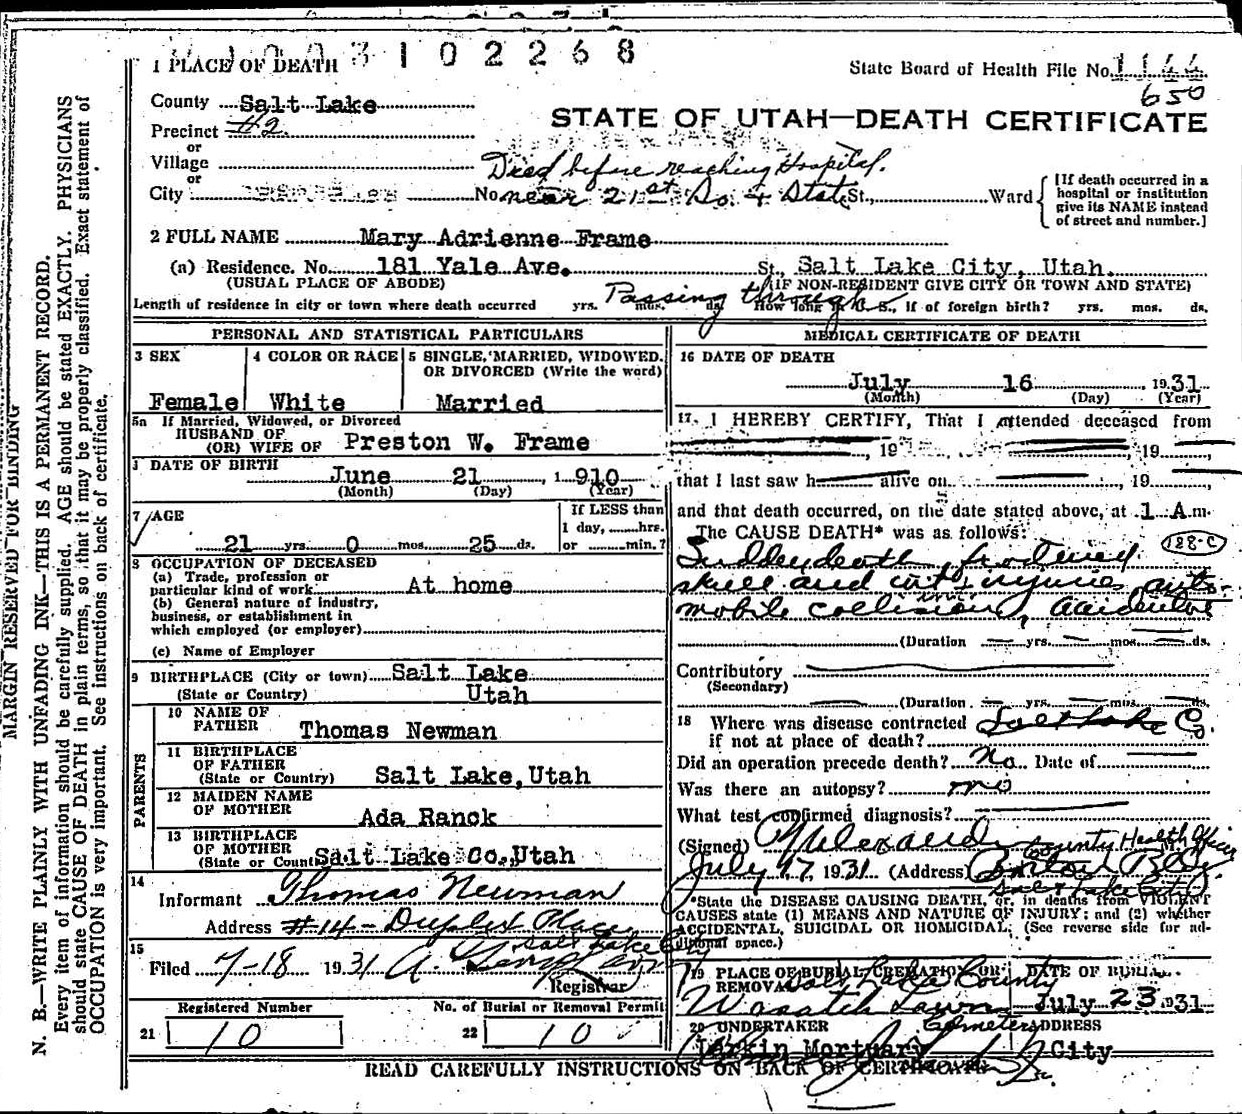 3102268
1 PLACE OF DEATH
State Board of Health File No. 1144
650
County Salt Lake
STATE OF UTAH—DEATH CERTIFICATE
Precinct #2.
or
Village
Died before reaching Hospital.
or
City No. near 21st So. & State St., Ward
[If death occurred in a hospital or institution give its NAME instead of street and number.]
2 FULL NAME Mary Adrienne Frame
(a) Residence. No. 181 Yale Ave. St., Salt Lake City, Utah.
(USUAL PLACE OF ABODE) (IF NON-RESIDENT GIVE CITY OR TOWN AND STATE)
Passing through
Length of residence in city or town where death occurred yrs. mos. ds. How long in U. S., if of foreign birth? yrs. mos. ds.
PERSONAL AND STATISTICAL PARTICULARS
3 SEX
Female
4 COLOR OR RACE
White
5 SINGLE, MARRIED, WIDOWED. OR DIVORCED (Write the word)
Married
5a If Married, Widowed, or Divorced
HUSBAND OF
(OR) WIFE OF Preston W. Frame
DATE OF BIRTH
June 21, 1910
(Month) (Day) (Year)
7 AGE
21 yrs. 0 mos. 25 ds.
If LESS than
1 day, hrs.
or min.?
8 OCCUPATION OF DECEASED
(a) Trade, profession or
particular kind of work At home
(b) General nature of industry,
business, or establishment in
which employed (or employer)
(c) Name of Employer
9 BIRTHPLACE (City or town) Salt Lake
(State or Country) Utah
PARENTS
10 NAME OF
FATHER Thomas Newman
11 BIRTHPLACE
OF FATHER
(State or Country) Salt Lake, Utah
12 MAIDEN NAME
OF MOTHER Ada Ranck
13 BIRTHPLACE
OF MOTHER
(State or Country) Salt Lake Co., Utah
14
Informant Thomas Newman
Address #14 - Duplex Place
Salt Lake City
15
Filed 7-18 1931
Registrar
Registered Number
21 10
No. of Burial or Removal Permit
22 10
MEDICAL CERTIFICATE OF DEATH
16 DATE OF DEATH
July 16, 1931
(Month) (Day) (Year)
17. I HEREBY CERTIFY, That I attended deceased from
, 19 , 19 ,
that I last saw h alive on , 19
and that death occurred, on the date stated above, at 1 A.m.
The CAUSE DEATH* was as follows:
188-C
Sudden death, fractured
skull and int. injuries auto-
mobile collision, accidental
(Duration yrs. mos. ds.
Contributory
(Secondary)
(Duration yrs. mos. ds.
18 Where was disease contracted
if not at place of death? Salt Lake Co.
Did an operation precede death? No Date of
Was there an autopsy? no
What test confirmed diagnosis?
(Signed)
County Health Officer
July 17, 1931 (Address)
Salt Lake City
*State the DISEASE CAUSING DEATH, or, in deaths from VIOLENT
CAUSES state (1) MEANS AND NATURE OF INJURY; and (2) whether
ACCIDENTAL, SUICIDAL OR HOMICIDAL. (See reverse side for ad-
ditional space.)
19 PLACE OF BURIAL, CREMATION OR
REMOVAL Salt Lake County
Wasatch Lawn
Cemetery
DATE OF BURIAL
July 23 1931
20 UNDERTAKER
Larkin Mortuary
ADDRESS
City
READ CAREFULLY INSTRUCTIONS ON BACK OF CERTIFICATE
MARGIN RESERVED FOR BINDING
N. B.—WRITE PLAINLY WITH UNFADING INK—THIS IS A PERMANENT RECORD.
Every item of information should be carefully supplied. AGE should be stated EXACTLY. PHYSICIANS
should state CAUSE OF DEATH in plain terms, so that it may be properly classified. Exact statement of
OCCUPATION is very important. See instructions on back of certificate.